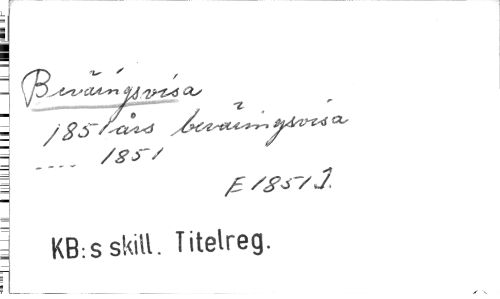 Beväringsvisa
1851 års beväringsvisa
.... 1851
E 1851 J.
KB:s skill. Titelreg.